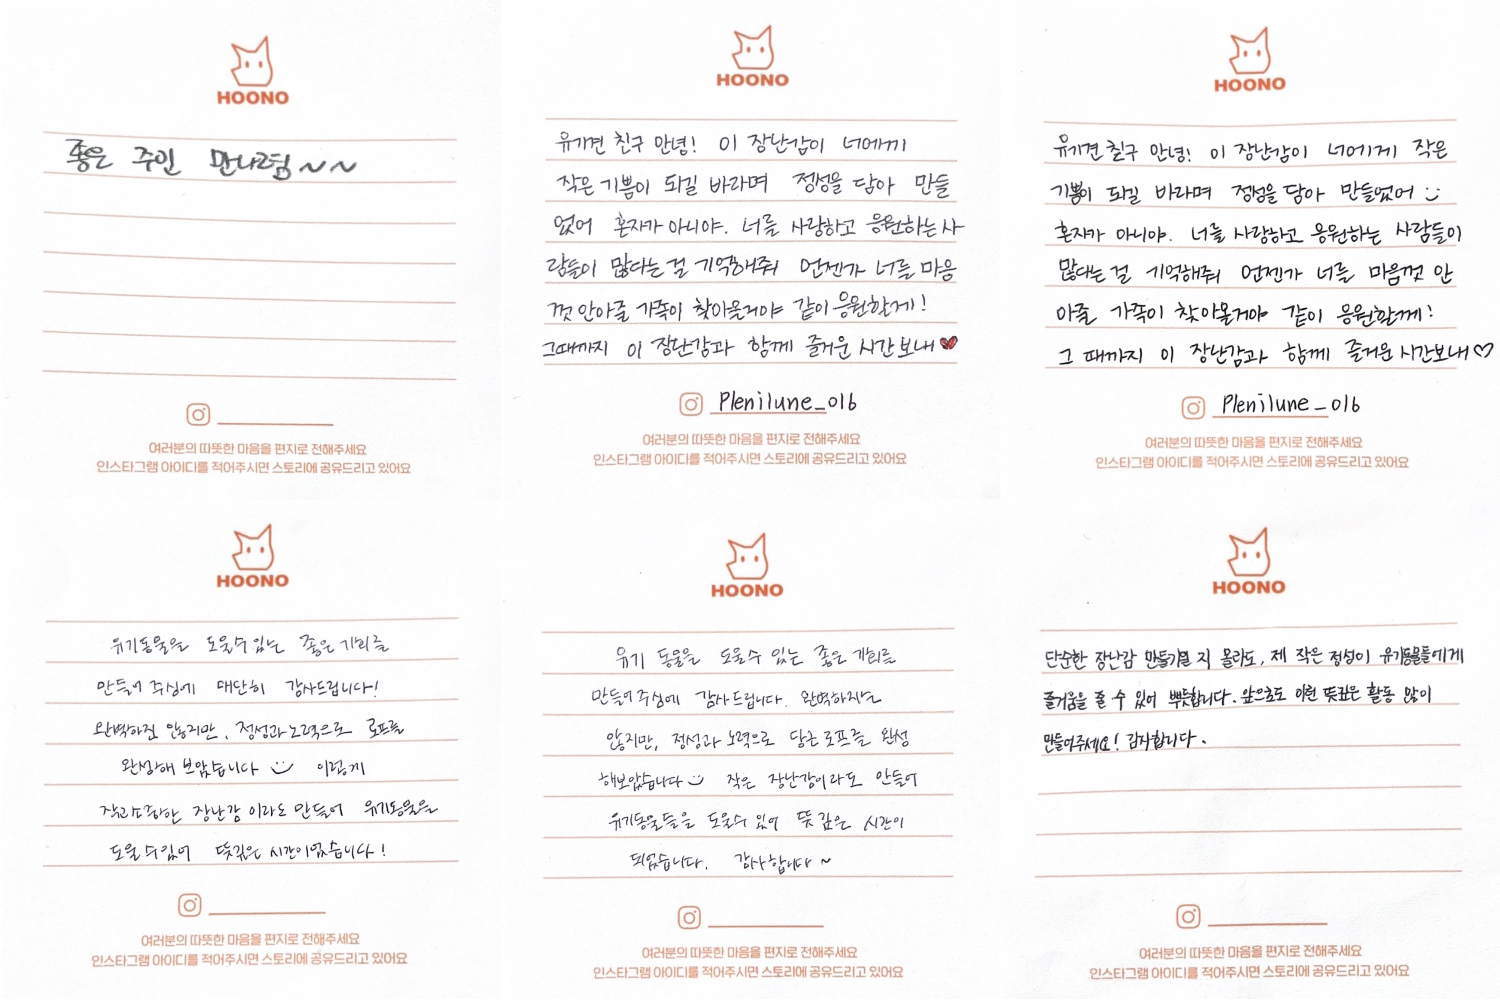 HOONO
좋은 주인 만나렴~~
여러분의 따뜻한 마음을 편지로 전해주세요
인스타그램 아이디를 적어주시면 스토리에 공유드리고 있어요
HOONO
유기견 친구 안녕! 이 장난감이 너에게
작은 기쁨이 되길 바라며 정성을 담아 만들
었어 혼자가 아니야. 너를 사랑하고 응원하는 사
람들이 많다는 걸 기억해줘 언젠가 너를 마음
껏 안아줄 가족이 찾아올거야 같이 응원할게!
그때까지 이 장난감과 함께 즐거운 시간 보내❤
Plenilune_016
여러분의 따뜻한 마음을 편지로 전해주세요
인스타그램 아이디를 적어주시면 스토리에 공유드리고 있어요
HOONO
유기견 친구 안녕! 이 장난감이 너에게 작은
기쁨이 되길 바라며 정성을 담아 만들었어 :)
혼자가 아니야. 너를 사랑하고 응원하는 사람들이
많다는 걸 기억해줘 언젠가 너를 마음껏 안
아줄 가족이 찾아올거야 같이 응원할게!
그 때까지 이 장난감과 함께 즐거운 시간보내♡
Plenilune_016
여러분의 따뜻한 마음을 편지로 전해주세요
인스타그램 아이디를 적어주시면 스토리에 공유드리고 있어요
HOONO
유기동물을 도울수있는 좋은 기회를
만들어 주심에 대단히 감사드립니다!
완벽하진 않지만, 정성과 노력으로 로프를
완성해 보았습니다 :) 이렇게
작고소중한 장난감 이라도 만들어 유기동물을
도울 수있어 뜻깊은 시간이었습니다!
여러분의 따뜻한 마음을 편지로 전해주세요
인스타그램 아이디를 적어주시면 스토리에 공유드리고 있어요
HOONO
유기 동물을 도울 수 있는 좋은 기회를
만들어주심에 감사드립니다. 완벽하지는
않지만, 정성과 노력으로 당근 로프를 완성
해보았습니다 :) 작은 장난감이라도 만들어
유기동물들을 도울수 있어 뜻 깊은 시간이
되었습니다. 감사합니다~
여러분의 따뜻한 마음을 편지로 전해주세요
인스타그램 아이디를 적어주시면 스토리에 공유드리고 있어요
HOONO
단순한 장난감 만들기일 지 몰라도, 제 작은 정성이 유기동물들에게
즐거움을 줄 수 있어 뿌듯합니다. 앞으로도 이런 뜻깊은 활동 많이
만들어주세요! 감사합니다.
여러분의 따뜻한 마음을 편지로 전해주세요
인스타그램 아이디를 적어주시면 스토리에 공유드리고 있어요